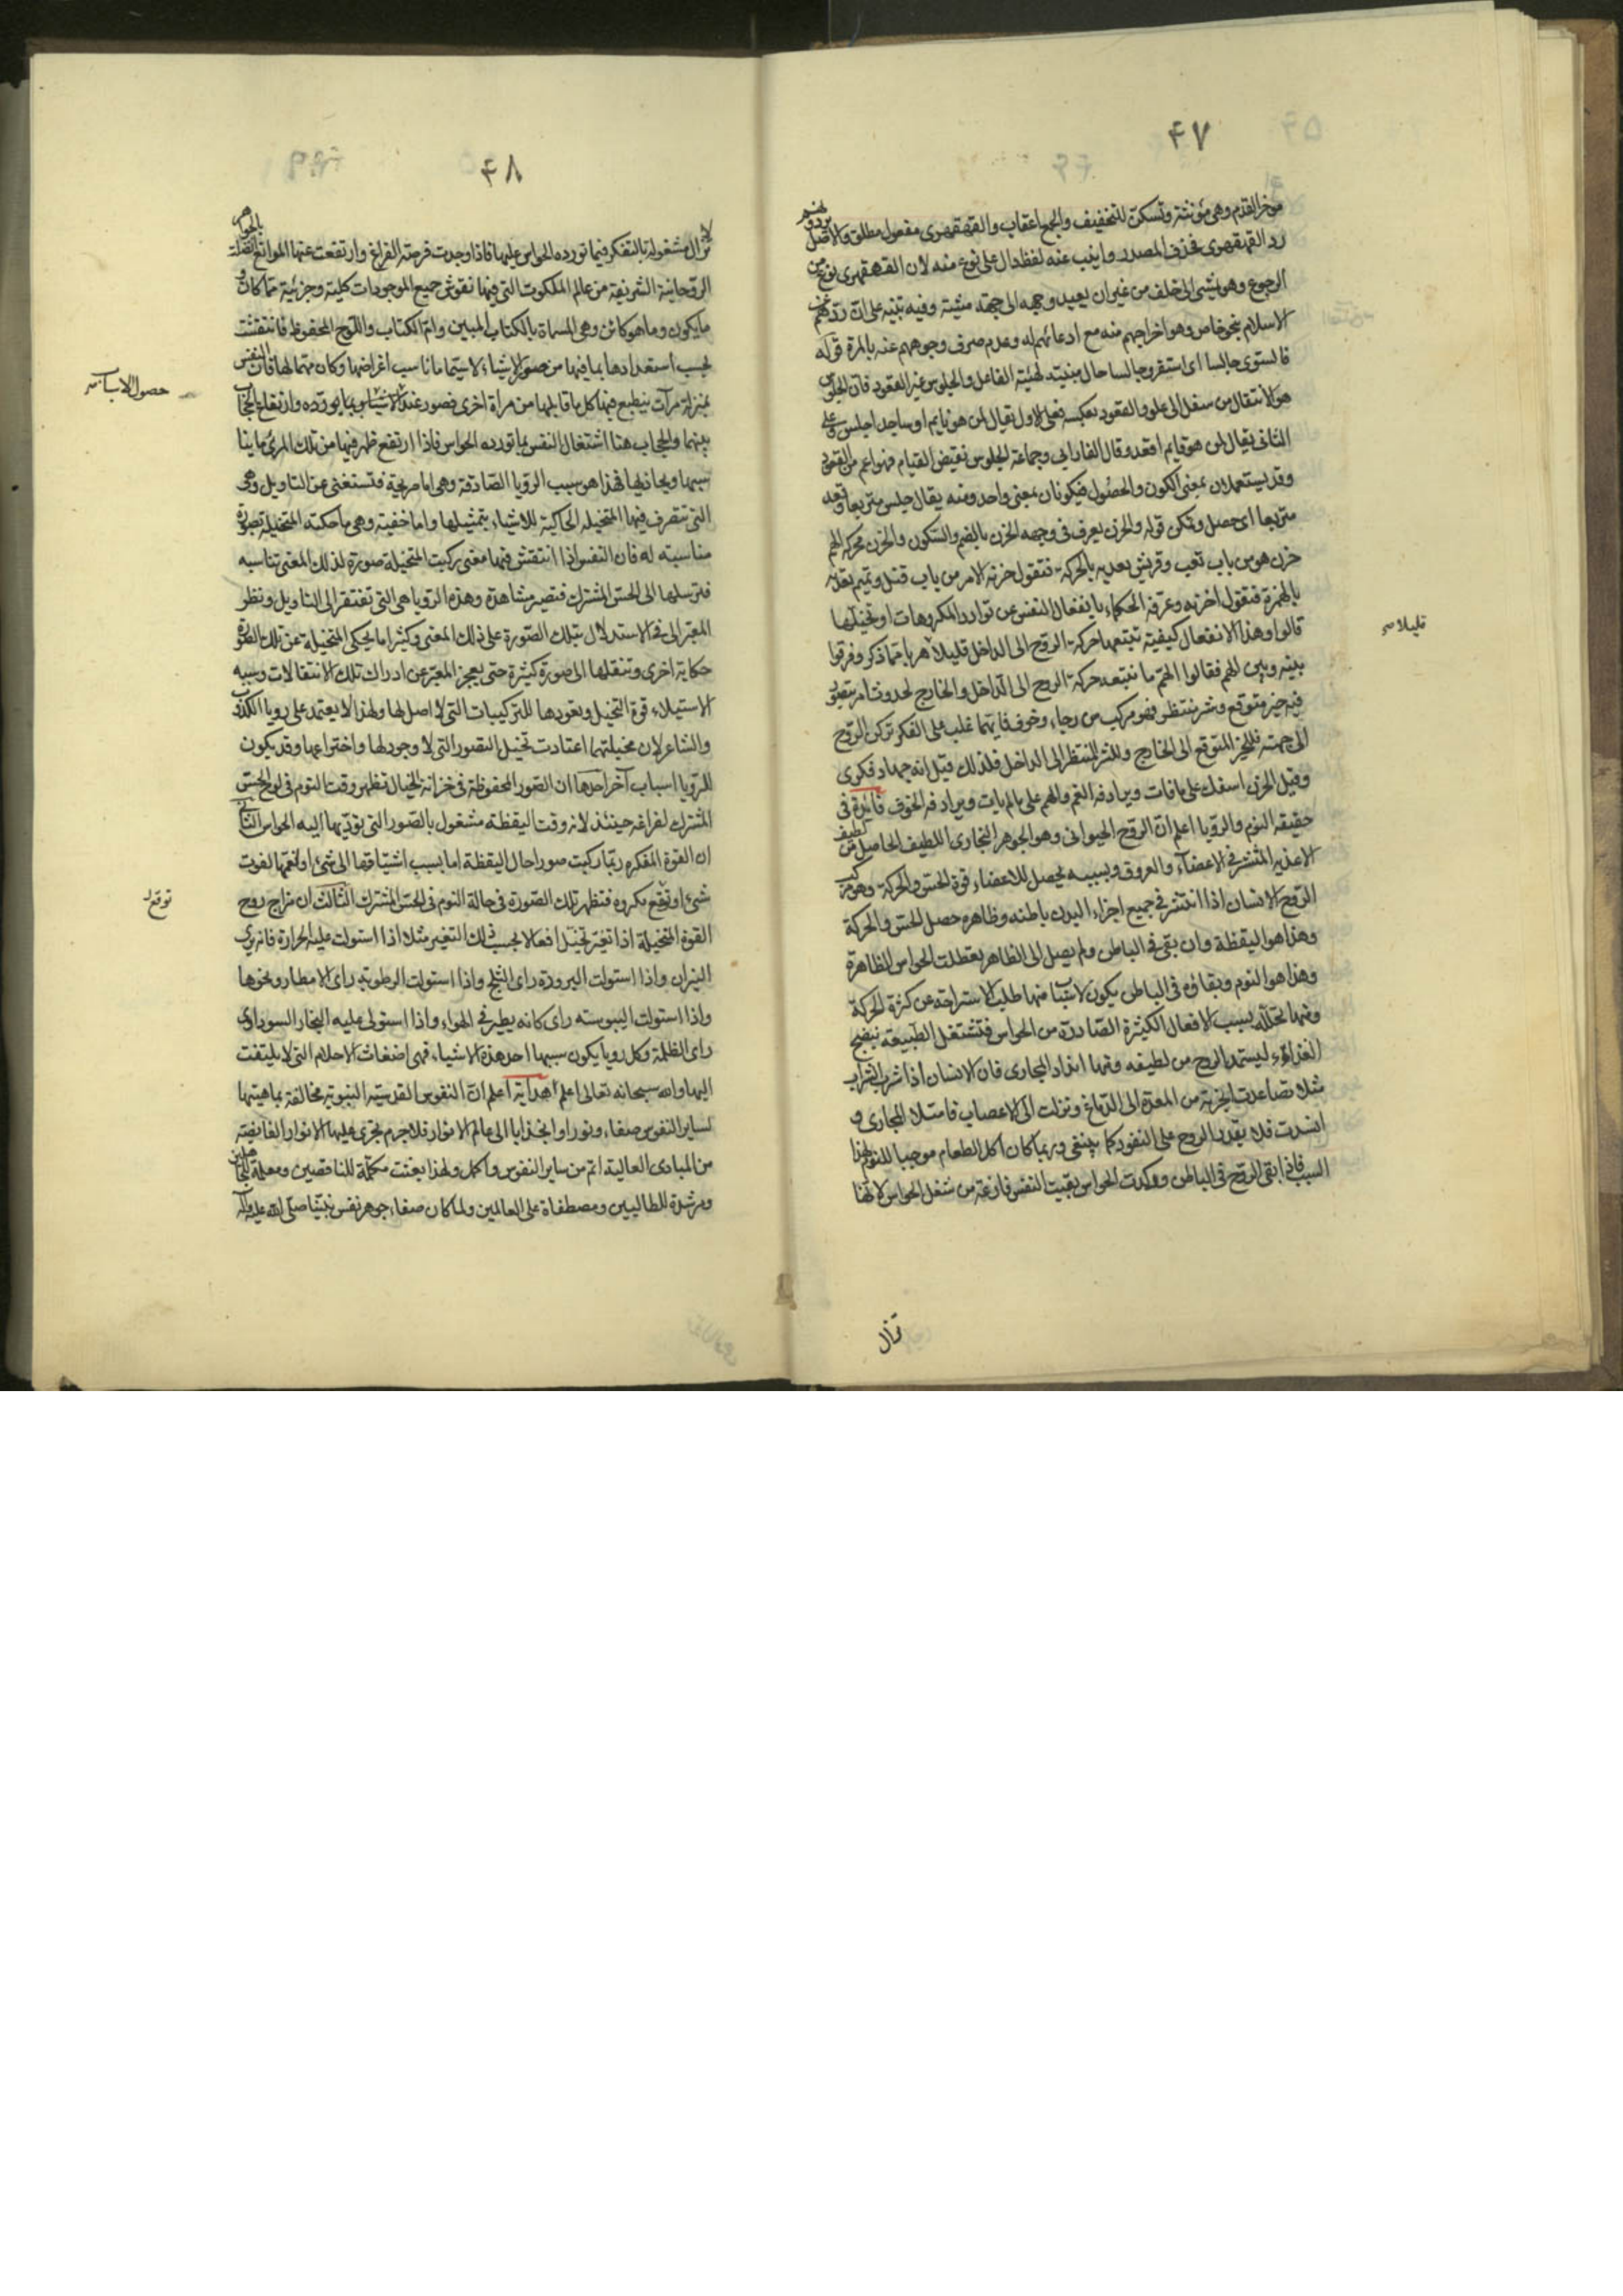 ۴۷
موخر القدم وهى مؤنثة وتسكن للتخفيف والجمع اعقاب والقهقهرى مفعول مطلق والاصل
رد القهقهرى فحذف المصدر وانيب عنه لفظ دال على نوع منه لان القهقهرى نوع من
الرجوع وهو يمشى الى خلف من غير ان يعيد وجهه الى جهة مشيته وفيه تنبيه على ان ردهم عن
الاسلام بنحو خاص وهو اخراجهم منه مع ادعائهم له وعدم صرف وجوههم عنه بالمرة قوله
فاستوى جالسا اى استقر وجالسا حال مبنية لهيئة الفاعل والجلوس غير القعود فان الجلوس
هو الانتقال من سفل الى علو والقعود بعكسه فعلى الاول يقال لمن هو نايم او ساجد اجلس وعلى
الثانى يقال لمن هو قايم اقعد وقال الفارابى وجماعة الجلوس نقيض القيام فهو اعم من القعود
وقد يستعملان بمعنى الكون والحصول فيكونان بمعنى واحد ومنه يقال جلس متربعا وقعد
متربعا اى حصل وتمكن قوله والحزن يعرف فى وجهه الحزن بالضم والسكون والحزن محركة الهم
حزن هو من باب تعب وقريش يعديه بالحركة فتقول حزنه الامر من باب قتل وتميم تعديه
بالهمزة فتقول احزنه وعرفه الحكماء بانفعال النفس عن توارد المكروهات او تخيلها
قالوا وهذا الانفعال كيفية تتبعها حركة الروح الى الداخل قليلا هربا مما ذكر وفرقوا
بينه وبين الهم فقالوا الهم ما تتبعه حركة الروح الى الداخل والخارج لحدوث امر يتصور
فيه خير متوقع وشر ينتظر فهو مركب من رجاء وخوف فايهما غلب على الفكر تركن الروح
الى جهته فللخير المتوقع الى الخارج وللشر المنتظر الى الداخل فلذلك قيل انه جهاد فكرى
وقيل الحزن اسفك على ما فات ويرادفه الغم والهم على ما لم يات ويرادفه الخوف فائدة فى
حقيقه النوم والرؤيا اعلم ان الروح الحيوانى وهو الجوهر البخارى اللطيف الحاصل من لطيف
الاغذية المنتشر فى الاعضاء والعروق وبسببه يحصل للاعضاء قوة الحس والحركة وهو مركب
الروح الانسان اذا انتشر فى جميع اجزاء البدن باطنه وظاهره حصل الحس والحركة
وهذا هو اليقظة وان بقى فى الباطن ولم يصل الى الظاهر تعطلت الحواس الظاهرة
وهذا هو النوم وبقاؤه فى الباطن يكون لاسباب منها طلب الاستراحة عن كثرة الحركة
ومنها تحلله بسبب الافعال الكثيرة الصادرة من الحواس فتشتغل الطبيعة بنضج
الغذاء ليستمد الروح من لطيفه ومنها انسداد المجارى فان الانسان اذا شرب الشراب
مثلا تصاعدت ابخرته من المعدة الى الدماغ ونزلت الى الاعصاب فامتلا المجارى و
انسدت فلا يقدر الروح على النفوذ كما ينبغى وربما كان اكل الطعام موجبا للنوم لهذا
السبب فاذا بقى الروح فى الباطن وركدت الحواس بقيت النفس فارغة من شغل الحواس لانها
قليلا
تزال
۴۸
لا تزال مشغولة بالتفكر فيما تورده الحواس عليها فاذا وجدت فرصة الفراغ وارتفعت عنها الموانع اتصلت بالجواهر
الروحانية الشريفة من عالم الملكوت التى فيها نقوش جميع الموجودات كلية وجزئية مما كان و
ما يكون وما هو كائن وهى المسماة بالكتاب المبين وام الكتاب واللوح المحفوظ فانتقشت
بحسب استعدادها بما فيها من صور الاشياء لا سيما ما ناسب اغراضها وكان مهما لها فان النفس
بمنزلة مرآت ينطبع فيها كل ما قابلها من مرأة اخرى فصور عند الاسباب وارتفاع الحجاب
بينهما والحجاب هنا اشتغال النفس بما تورده الحواس فاذا ارتفع ظهر فيها من تلك المرئ ما ينا
سبها ويحاذيها فهذا هو سبب الرؤيا الصادقة وهى اما صريحة فتستغنى عن التاويل وهى
التى تتصرف فيها المتخيلة الحاكية للاشياء بتمثيلها واما خفيته وهى ما حكته المتخيلة بصورة
مناسبته له فان النفس اذا انتقش فيها معنى ركبت المتخيلة صورة لذلك المعنى تناسبه
فترسلها الى الحس المشترك فتصير مشاهدة وهذه الرؤيا هى التى تفتقر الى التاويل ونظر
المعبر الى فى الاستدلال بتلك الصورة على ذلك المعنى وكثيرا ما يحكى المتخيلة عن تلك الصورة
حكاية اخرى وتنقلها الى صورة كثيرة حتى يعجز المعبر عن ادراك تلك الانتقالات وسببه
الاستيلاء قوة التخيل وتعودها للتركيبات التى لا اصل لها ولهذا لا يعتمد على رويا الكذاب
والشاعر لان مخيلتهما اعتادت تخيل التصور التى لا وجود لها واختراعها وقد يكون
للرؤيا اسباب آخر احدها ان الصور المحفوظة فى خزانة الخيال تظهر وقت النوم فى لوح الحس
المشترك لفراغه حينئذ لانه وقت اليقظة مشغول بالصور التى تؤديها اليه الحواس الثانى
ان القوة المفكره ربما ركبت صورا حال اليقظة اما بسبب اشتياقها الى شئ او لغمها لفوت
شئ او توقع مكروه فتظهر تلك الصورة فى حالة النوم فى الحس المشترك الثالث ان مزاج روح
القوة المتخيلة اذا تغير تخيل افعالا بحسب ذلك التغير مثلا اذا استولت عليه الحرارة فانه يرى
النيران واذا استولت البرودة راى الثلج واذا استولت الرطوبة راى الامطار ونحوها
واذا استولت اليبوسته راى كانه يطير فى الهواء واذا استولى عليه البخار السوداوى
راى الظلمة وكل رويا يكون سببها احد هذه الاشياء فهى اضغاث الاحلام التى لا يلتفت
اليها والله سبحانه تعالى اعلم هداية اعلم ان النفوس القدسية النبوية مخالفة بماهيتها
لساير النفوس صفاء ونورا وانجذابا الى عالم الانوار فلا جرم تجرى عليها الانوار الفايضة
من المبادى العالية اتم من ساير النفوس واكمل ولهذا بعثت مكملة للناقصين ومعلمة للجاهلين
ومرشدة للطالبين ومصطفاة على العالمين ولما كان صفاء جوهر نفس نبينا صلى الله عليه وآله
حصول الاسباب
توقع